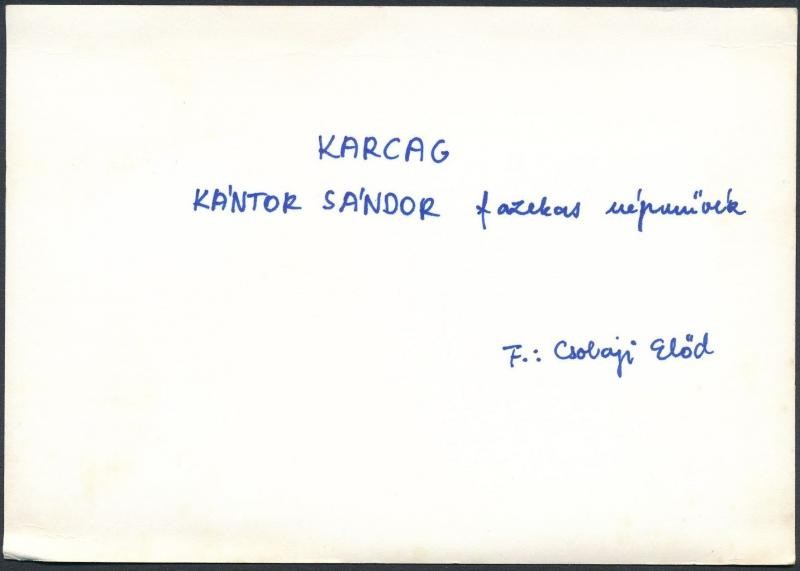 KARCAG
KÁNTOR SÁNDOR fazekas népművék
F.: Csobaji Előd